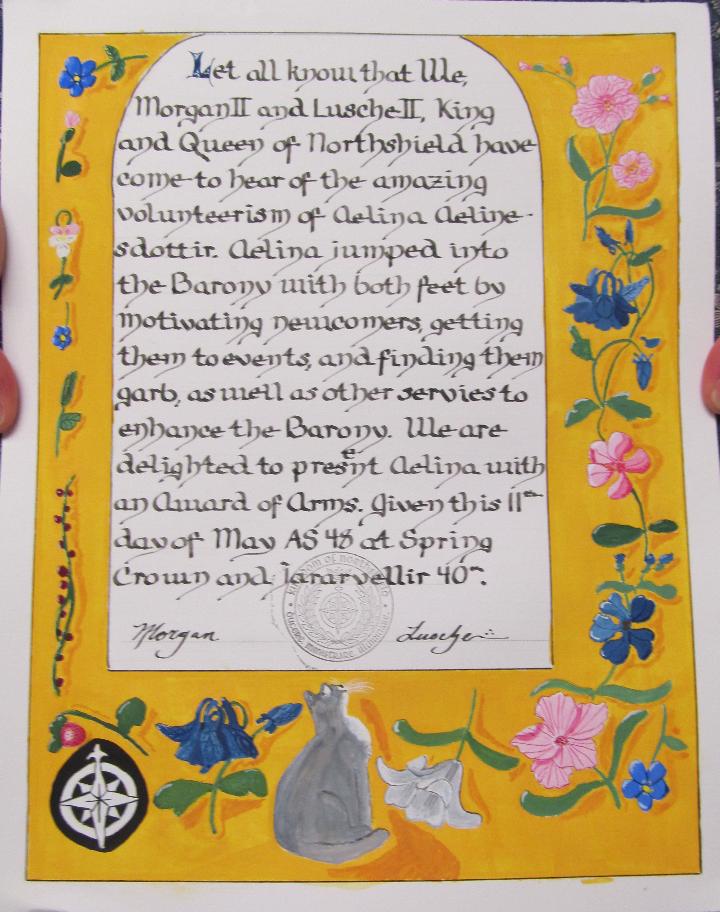 Let all know that We,
Morgan II and Lusche II, King
and Queen of Northshield have
come to hear of the amazing
volunteerism of Aelina Aeline-
sdottir. Aelina jumped into
the Barony with both feet by
motivating newcomers, getting
them to events, and finding them
garb, as well as other servies to
enhance the Barony. We are
delighted to present Aelina with
an Award of Arms. Given this 11th
day of May AS 48 at Spring
Crown and Jararvellir 40th.
Kingdom of Northshield
Morgan Lusche